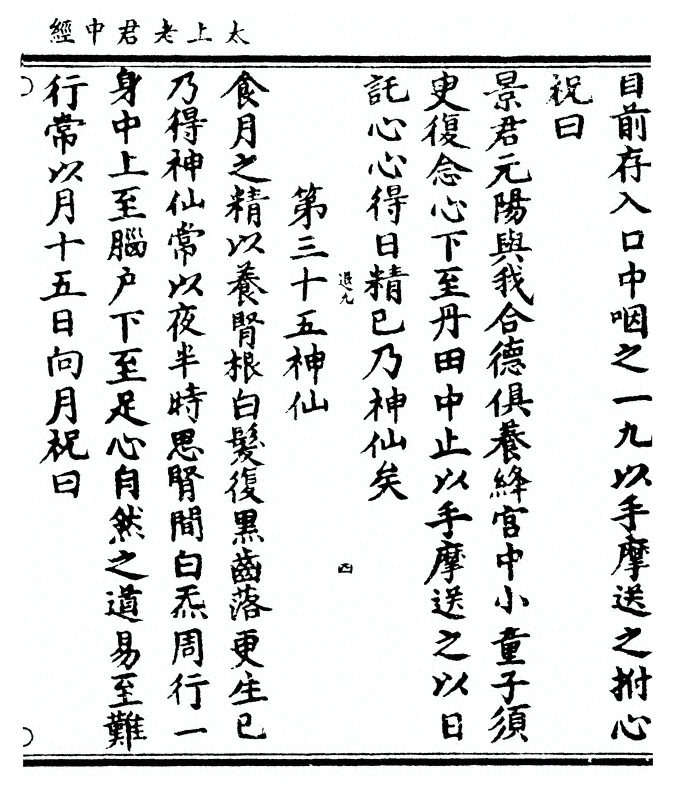 太上老君中經
目前存入口中咽之一九以手摩送之拊心
祝曰
景君元陽與我合德俱養絳宮中小童子須
更復念心下至丹田中止以手摩送之以日
託心心得日精巳乃神仙矣
退九
四
第三十五神仙
食月之精以養腎根白髮復黑齒落更生已
乃得神仙常以夜半時思腎間白炁周行一
身中上至腦户下至足心自然之道易至難
行常以月十五日向月祝曰